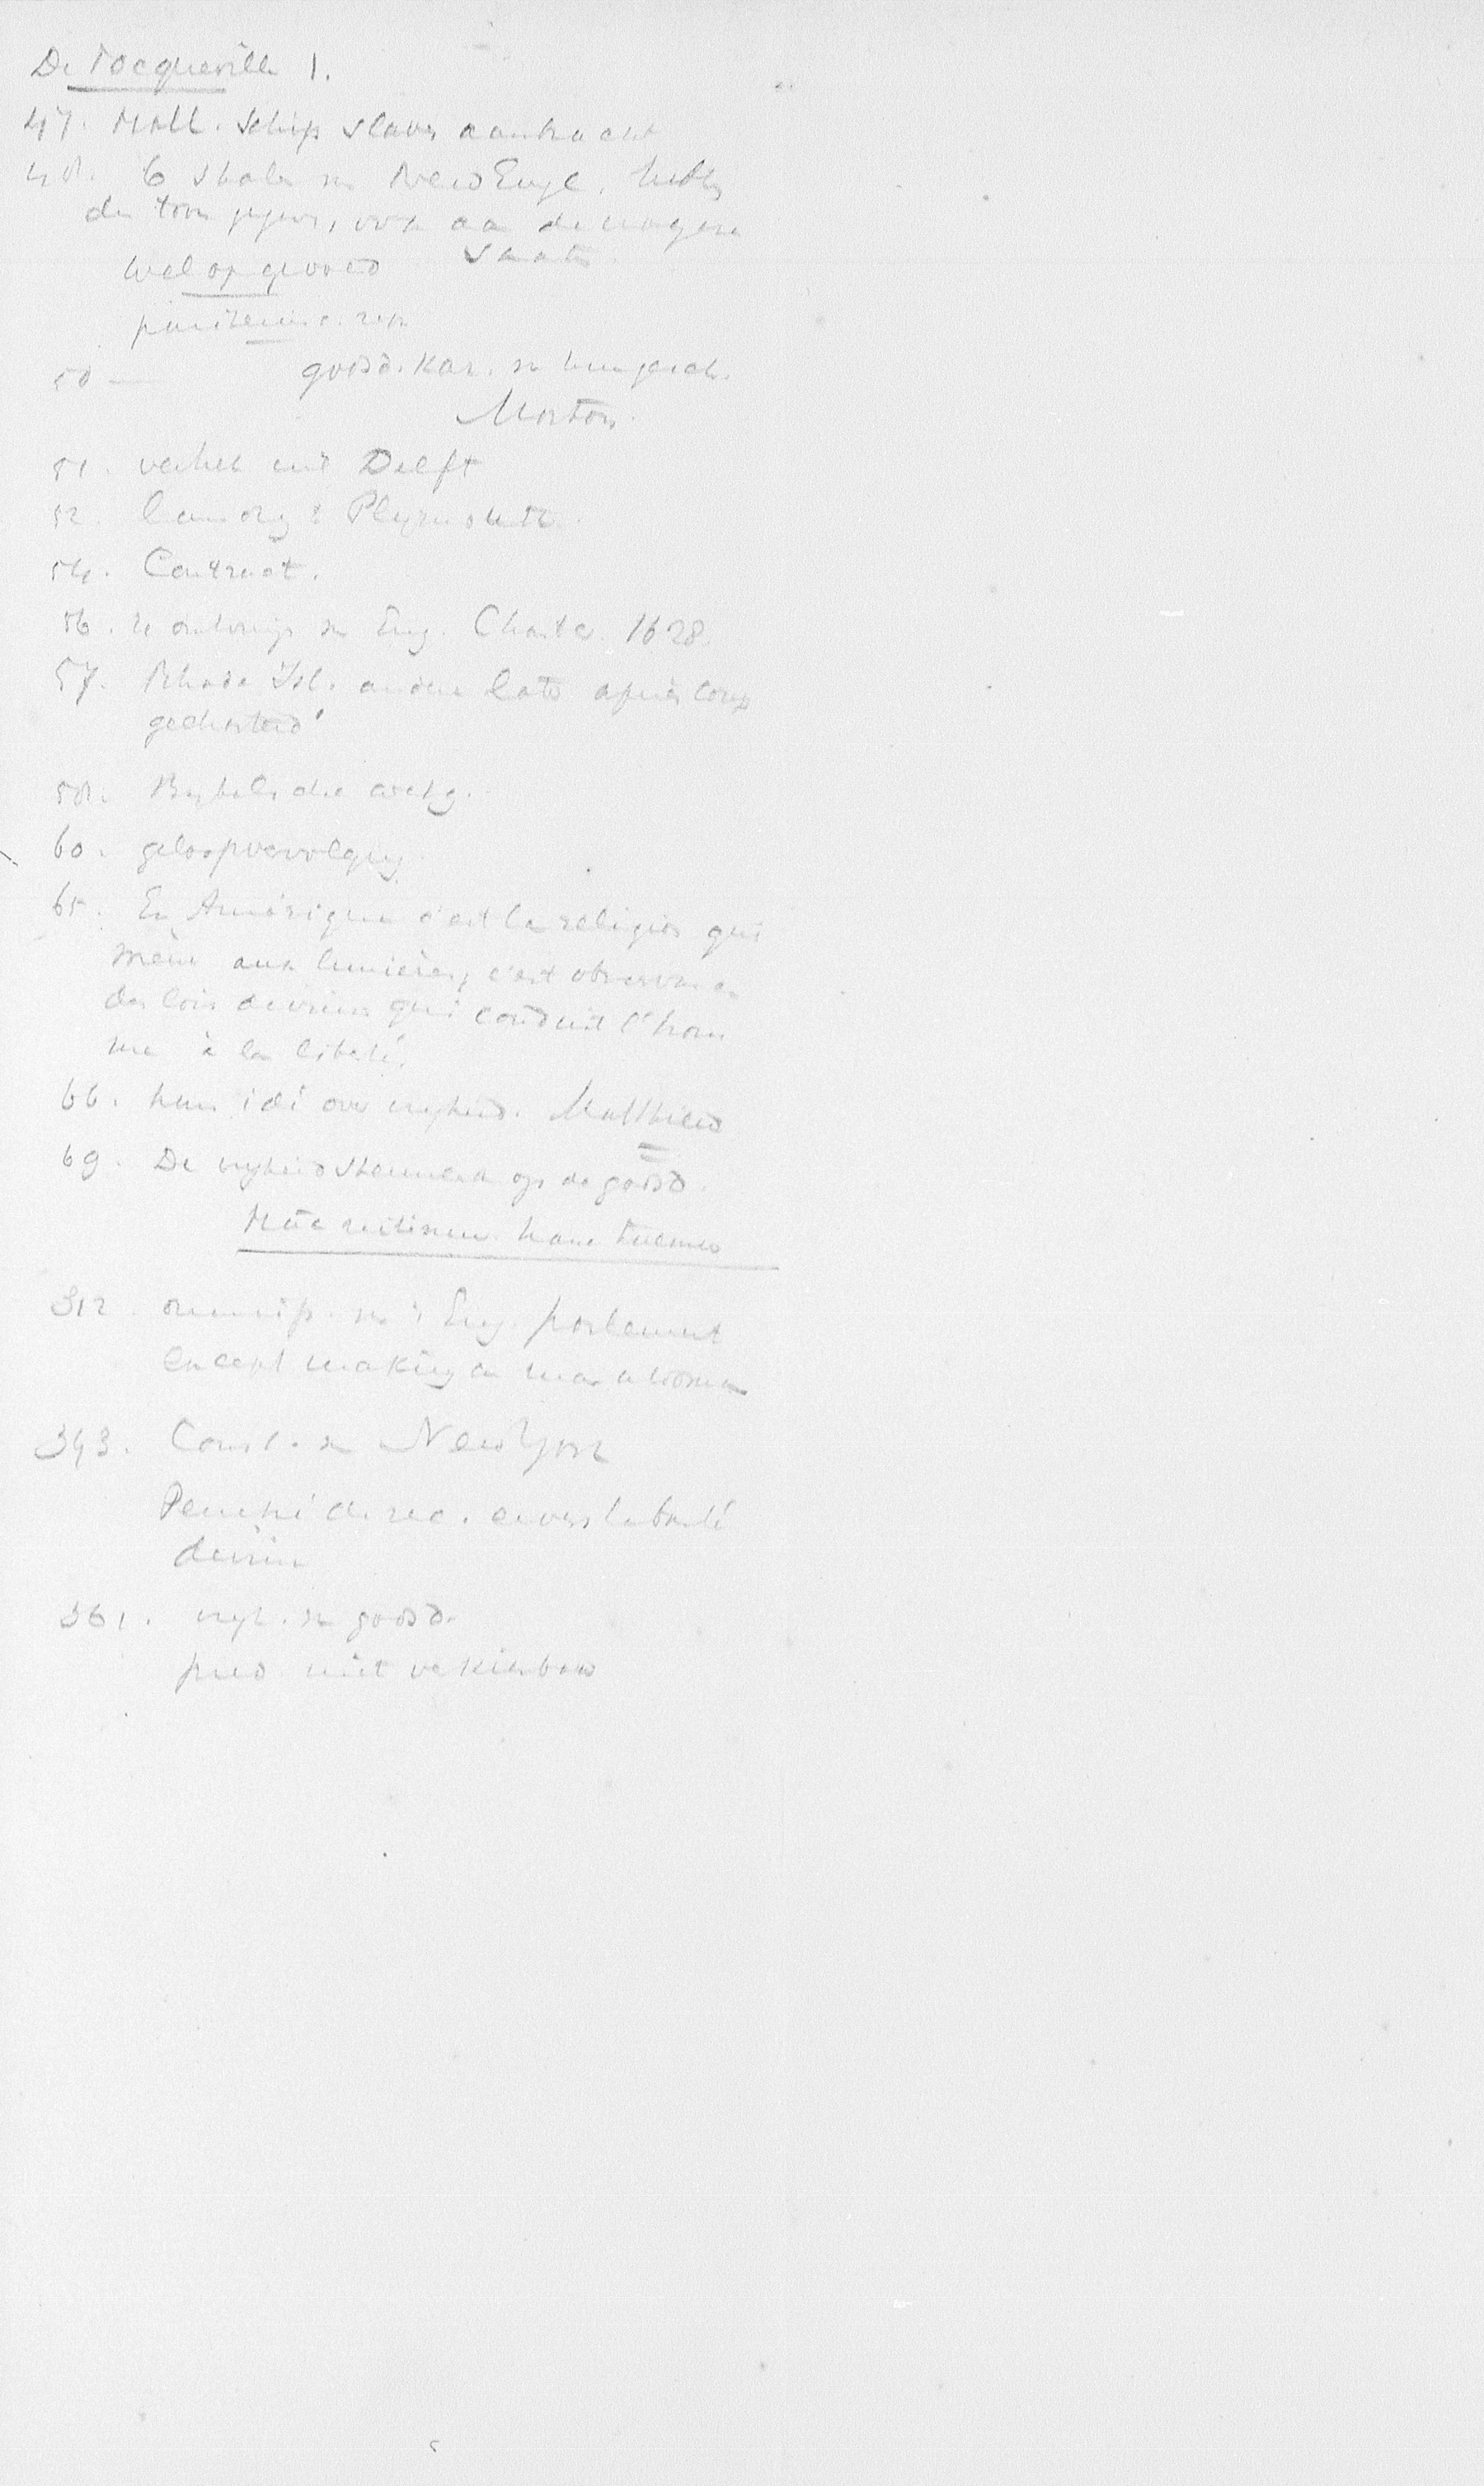 De Tocqueville 1.
47. Holl. schip slaven aanbracht
48. 6 Staten v. New Engl. hebben
den toon gegeven, ook aan de vroegere
Staten
wel opgevoed
puriteins. rep.
50 — godsd. kar. v. hun gesch.
Morton.
51. vertrek uit Delft
52. landing t Plymouth.
54. Contract.
56. te ontwerp v. Eng. Charter 1628.
57. Rhode Isl. andere later après coup
gecharterd
58. Bybelsche wetg.
60. geloofsvervolging.
65. En Amérique c'est la religion qui
mène aux lumières; c'est observance
des lois divines qui conduit l'hom
me à la liberté.
66. hun idé over vryheid. Matthieu
69. De vryheid steunend op de godsd.
312. omnip. v. 't Eng. parlement
except making a man a woman
343. Const. v. New York
de rec. envers la bonté
divine
361. vryh. v. godsd.